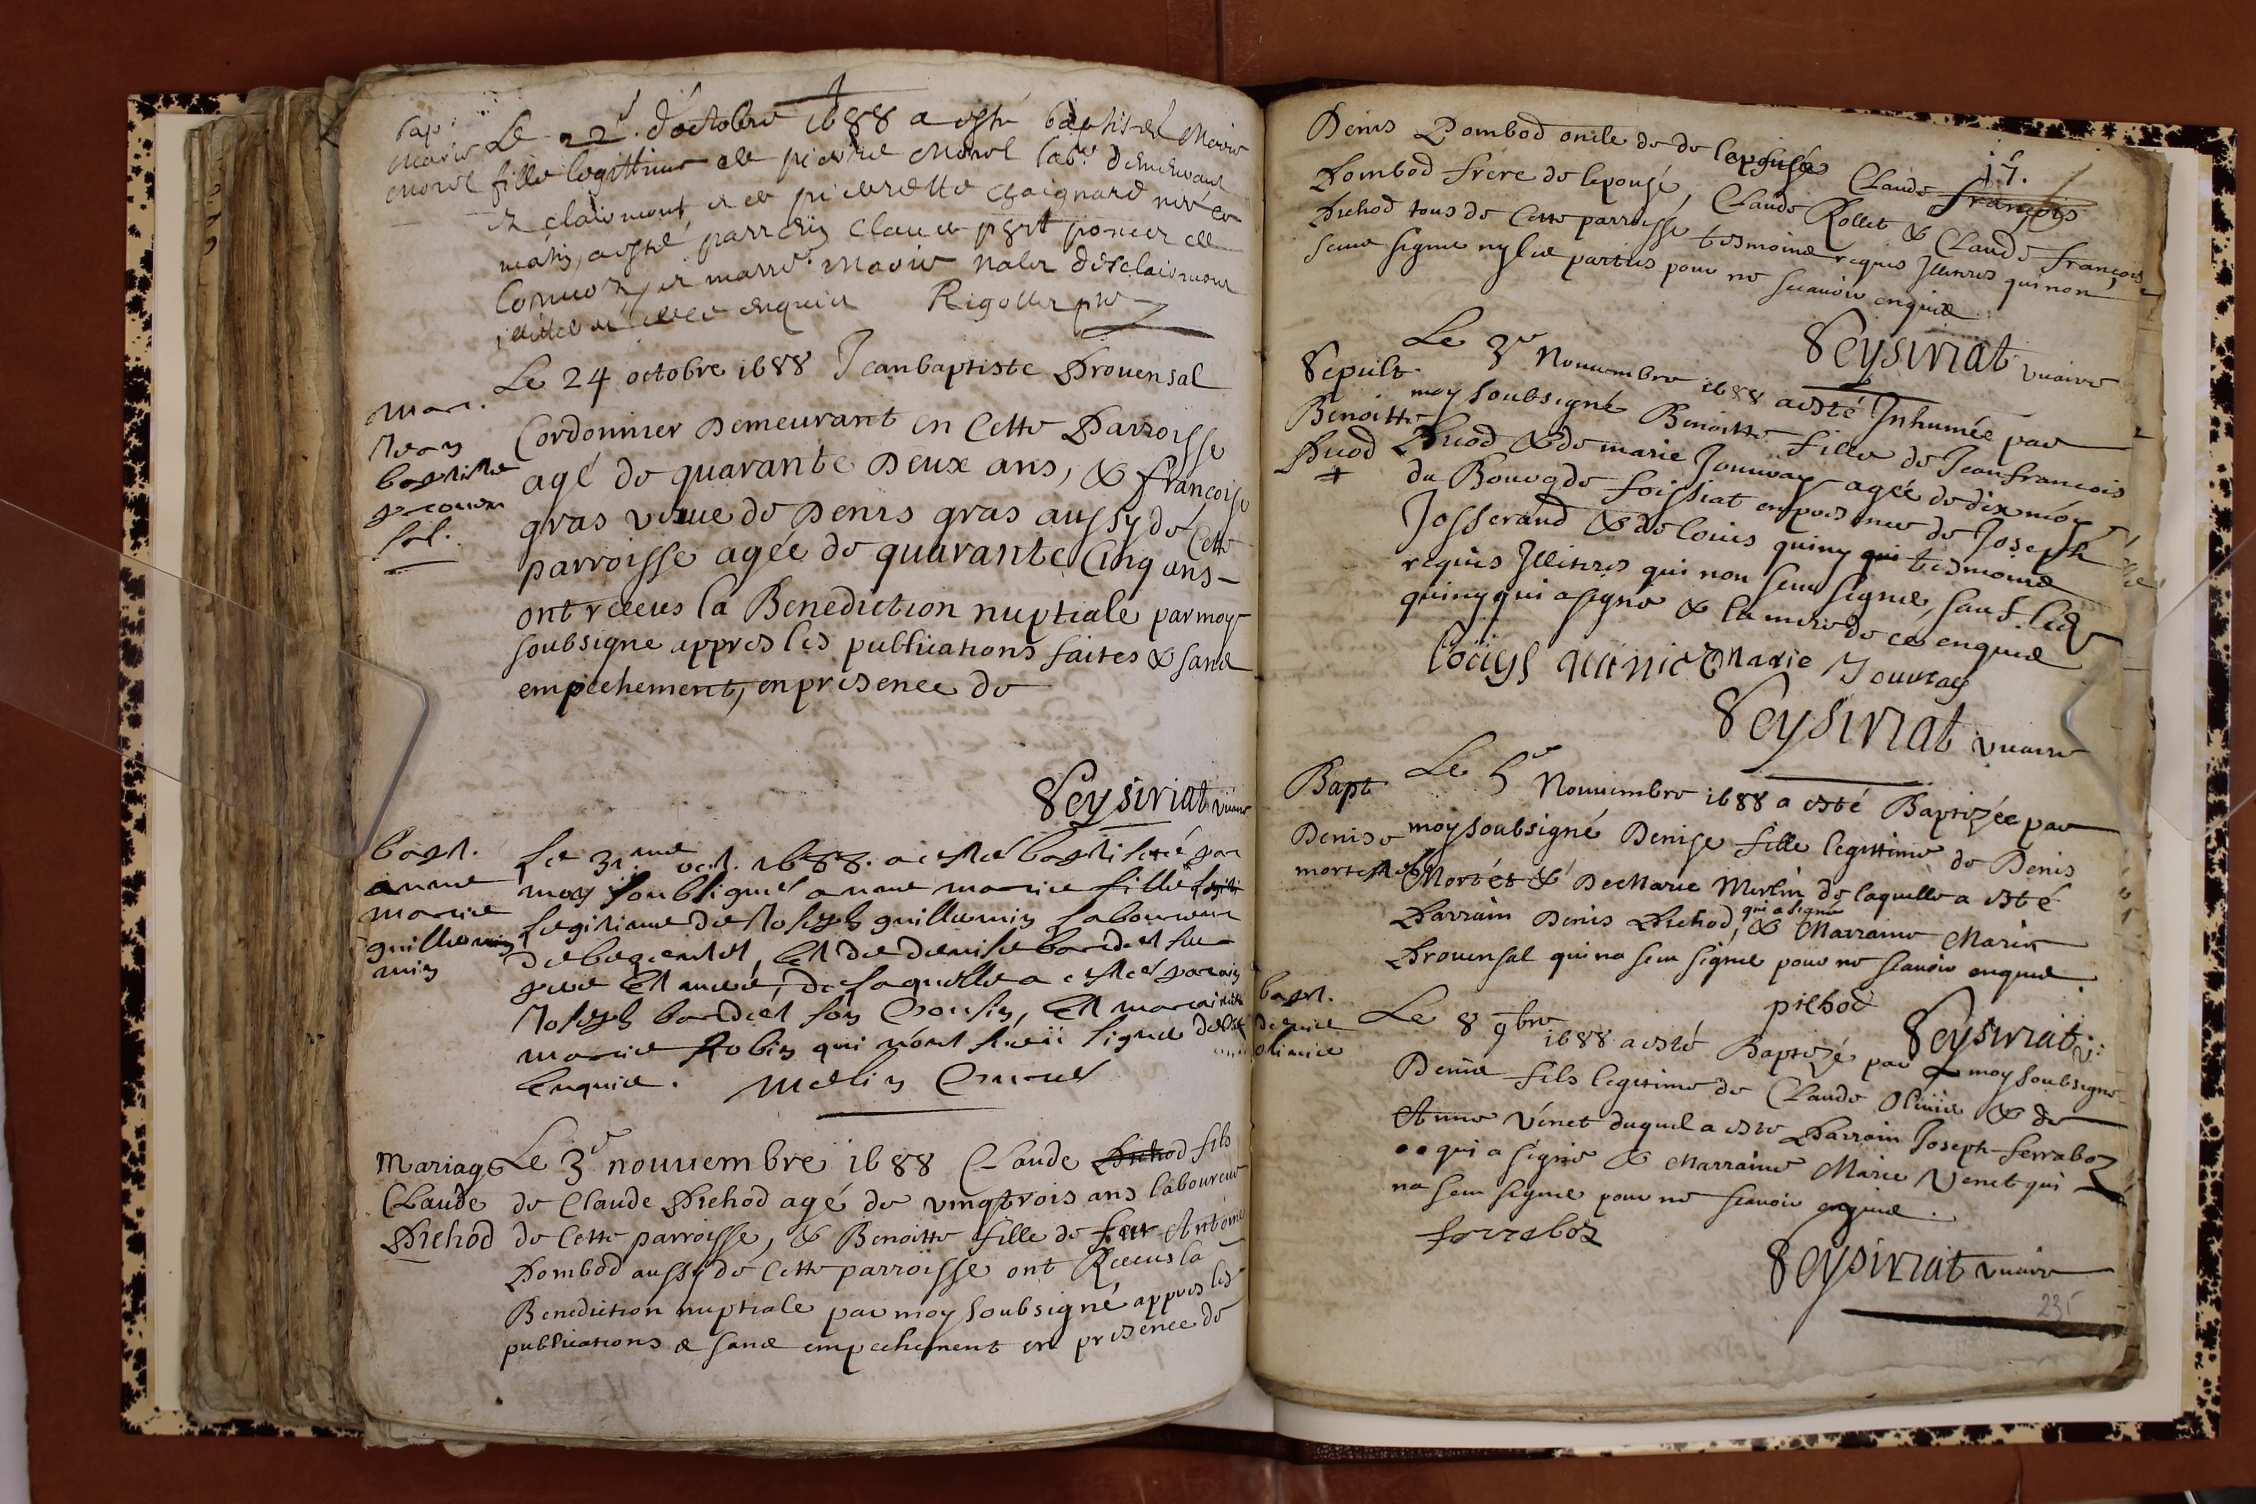 bap.
Marie
Morel
Le 22e. d'octobre 1688 a esté baptisée Marie
fille legittime de pierre Morel lab.r demeurant
a clairmont, et de pierrette Chaignard née ce
matin, a esté parrein Claude
et marre. Marie d'esclairmont
enquis Rigollet pbre
Mar.
Jean
baptiste
prouen
sal.
Le 24 octobre 1688 Jeanbaptiste Prouensal
Cordonnier Demeurant en Cette Parroisse
agé de quarante Deux ans, & françoise
gras vefue de Denis gras aussy de Cette
parroisse agée de quarante Cinq ans –
ont receus la Benediction nuptiale par moy
soubsigne appres les publications faites & sans
empechement, en presence de
Seysiriat viccaire
bapt.
anne
marie
guillemin
min
Le 31.me oct. 1688. a esté baptiseé par
moy soubsigné anne marie fille
legitime de Joseph guillemin laboureur
de beguentet, Et de denise bordet ses
pere Et mere, de laquelle a esté parain
Joseph bordet son Cousin, Et maraine
marie Robin qui n'ont sceü signe de ce
Enquis. Merlin Cure
Mariage
Claude
Pichod
Le 3e nouuembre 1688 Claude Pichod fils
de Claude Pichod agé de vingtrois ans laboureur
de Cette parroisse, & Benoitte fille de feu Antoine
Pombod aussy de Cette parroisse ont Receus la
Benediction nuptiale par moy soubsigné appres les
publications & sans empechement en presence de
17.
Denis Pombod oncle de de lepousée Claude françois
Pombod frere de lepousé, Claude Rollet & Claude françois
Pichod tous de Cette parroisse tesmoins requis Illitirés qui non
sceu signe ny les parties pour ne scauoir enquis
Seysiriat vicaire
Sepult.
Benoitte
Puod
+
Le 3e Nouuembre 1688 a esté Inhumée par
moy soubsigné Benoitte fille de Jeanfrancois
Puod & de marie Jouuray agée de dix mois
du Bourg de foissiat en presence de Joseph
Josserand & de louis quiny qui tesmoins
requis Illitirés qui non sceu signe, sauf led
quiny qui a signe & la mere de ce enquis
loüys quinic Marie Jouuray
Seysiriat vicaire
Bapt.
Denise
mortet
Le 5e Nouuembre 1688 a esté Baptizée par
moy soubsigné Denise fille legittime de Denis
Mortet & De Marie Merlin de laquelle a esté
Parrain Denis Pichod, qui a signe & Marraine Marie
Prouensal qui na sceu signe pour ne scauoir enquis.
pichod Seysiriat v:
bapt.
denis
oliuier
Le 8 9bre 1688 a esté Baptizé par moy soubsigne
Denis fils legitime de Claude Oliuier & de
Anne Vénet duquel a este Parrain Joseph ferraboz
qui a signe & Marraine Marie Venet qui
na sceu signe pour ne scauoir enquis.
ferraboz
Seysiriat vicaire
235